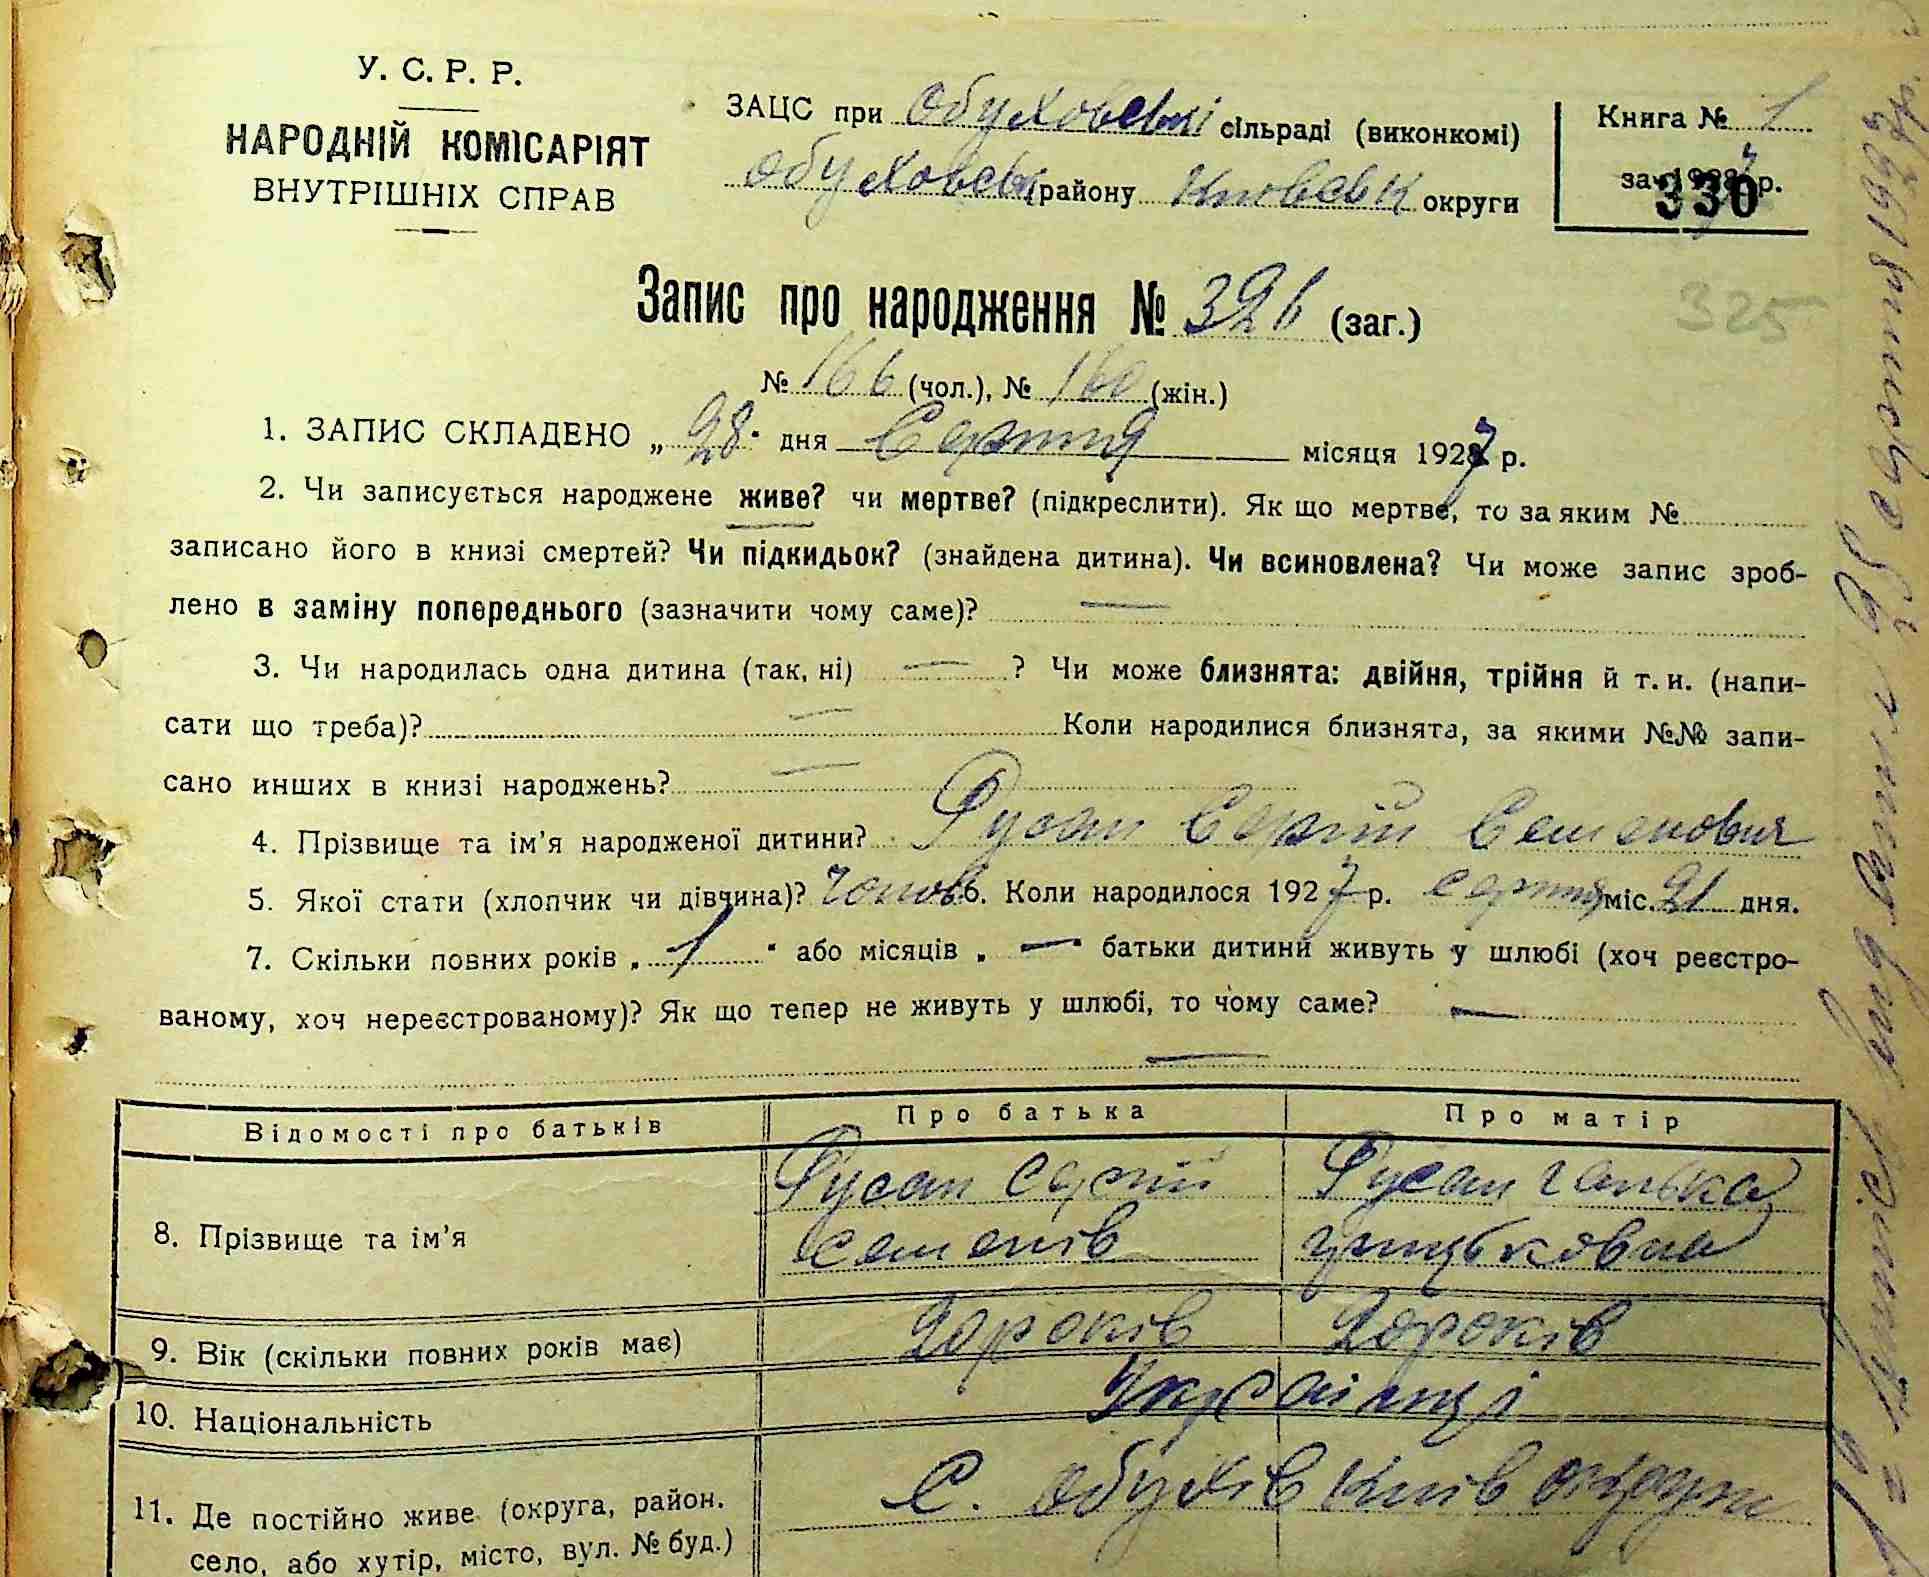 У. С. Р. Р.
НАРОДНІЙ КОМІСАРІЯТ
ВНУТРІШНІХ СПРАВ
ЗАЦС при Обуховські сільраді (виконкомі)
Обуховськ району Київськ округи
Книга № 1
за 1927 р.
330
325
Запис про народження № 326 (заг.)
№ 166 (чол.), № 160 (жін.)
1. ЗАПИС СКЛАДЕНО „ 28 " дня Серпня місяця 1927 р.
2. Чи записується народжене живе? чи мертве? (підкреслити). Як що мертве, то за яким №
записано його в книзі смертей? Чи підкидьок? (знайдена дитина). Чи всиновлена? Чи може запис зроб-
лено в заміну попереднього (зазначити чому саме)? —
3. Чи народилась одна дитина (так, ні) — ? Чи може близнята: двійня, трійня й т. и. (напи-
сати що треба)? — Коли народилися близнята, за якими №№ запи-
сано инших в книзі народжень? —
4. Прізвище та ім'я народженої дитини? Русан Сергій Семенович
5. Якої стати (хлопчик чи дівчина)? Чолов 6. Коли народилося 1927 р. серпня міс. 21 дня.
7. Скільки повних років „ 1 " або місяців „ — " батьки дитини живуть у шлюбі (хоч реєстро-
ваному, хоч нереєстрованому)? Як що тепер не живуть у шлюбі, то чому саме? —
—
Відомості про батьків Про батька Про матір
8. Прізвище та ім'я
Русан Сергій
семенів
Русан ганька
грицьковна
9. Вік (скільки повних років має) 20 років 20 років
10. Національність Українці
11. Де постійно живе (округа, район.
село, або хутір, місто, вул. № буд.)
С. Обухів Київ округи